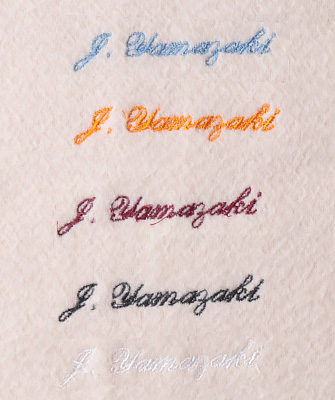 J. Yamazaki
J. Yamazaki
J. Yamazaki
J. Yamazaki
J. Yamazaki